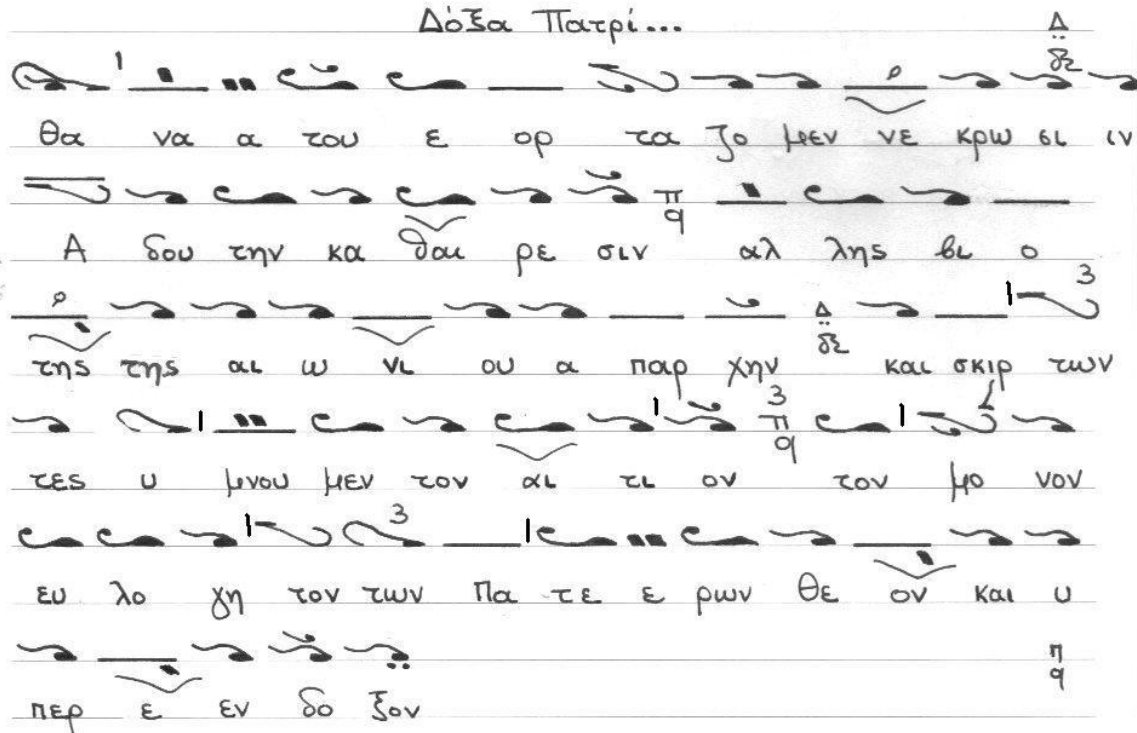 Δόξα Πατρί...
Θα να α του ε ορ τα ζο μεν νε κρω σι ιν
Α δου την κα θαι ρε σιν αλ λης βι ο
της της αι ω νι ου α παρ χην και σκιρ των
τες υ μνου μεν τον αι τι ον τον μο νον
ευ λο γη τον των Πα τε ε ρων θε ον και υ
περ ε εν δο ξον